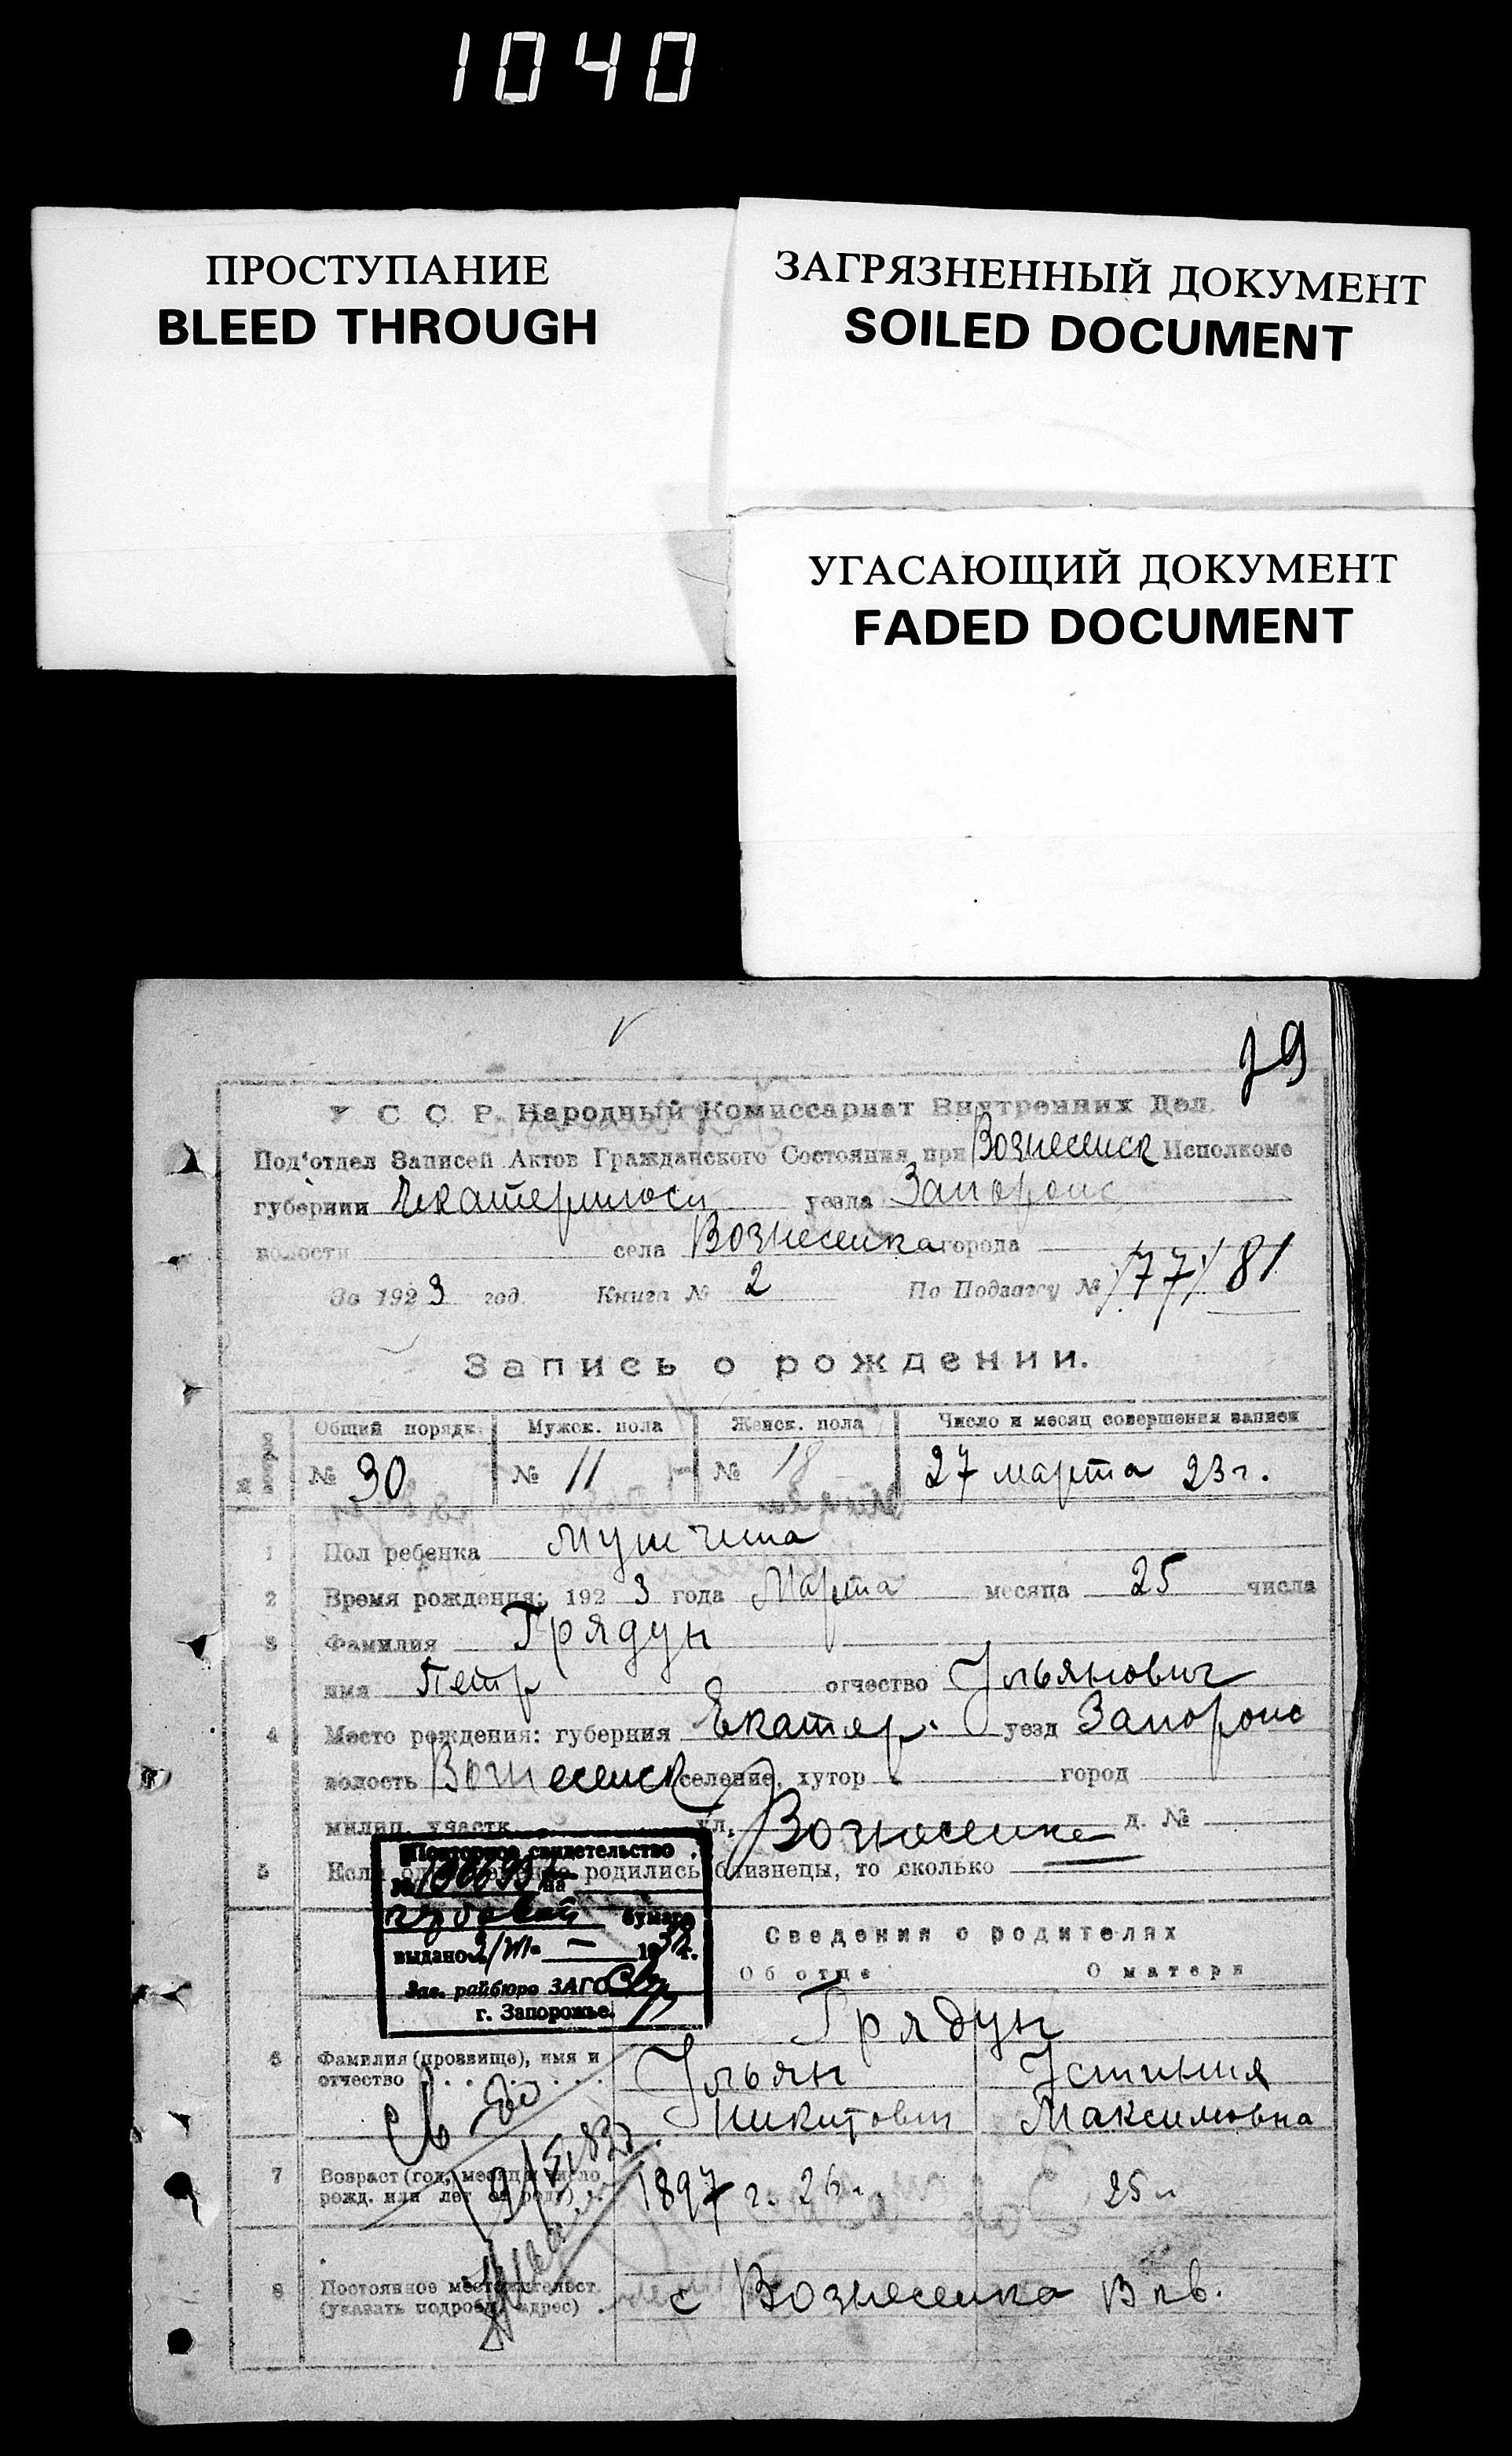 1040
ПРОСТУПАНИЕ
BLEED THROUGH
ЗАГРЯЗНЕННЫЙ ДОКУМЕНТ
SOILED DOCUMENT
УГАСАЮЩИЙ ДОКУМЕНТ
FADED DOCUMENT
У С С Р. Народный Комиссариат Внутренних Дел.
Под'отдел Записей Актов Гражданского Состояния при Вознесенск Исполкоме
губернии Екатериносл уезда Запорожс
волости села Вознесенка города
За 1923 год. Книга № 2 По Подзагсу № 177/81
Запись о рождении.
Общий порядк. Мужск. пола Женск. пола Число и месяц совершения записи
№ 30 № 11 № 18 27 марта 23 г.
1 Пол ребенка мужчина
2 Время рождения: 1923 года Марта месяца 25 числа
3 Фамилия Грядун
имя Петр отчество Ильянович
4 Место рождения: губерния Екатер. уезд Запорожс
волость Вознесенск селение, хутор город
милиц. участк. ул. Вознесенка д. №
5 Если родились близнецы, то сколько
Повторное свидетельство
№ на
бумаге
выдано 19 г.
Зав. райбюро ЗАГС
г. Запорожье.
Сведения о родителях
Об отце О матери
Грядун
6 Фамилия (прозвище), имя и отчество
Ильян Устиния
Никитович Максимовна
7 Возраст (год, месяц и число рожд. или лет от роду)
1897 г. 26 л. 25 л
8 Постоянное местожительст. (указать подробн. адрес)
с Вознесенка